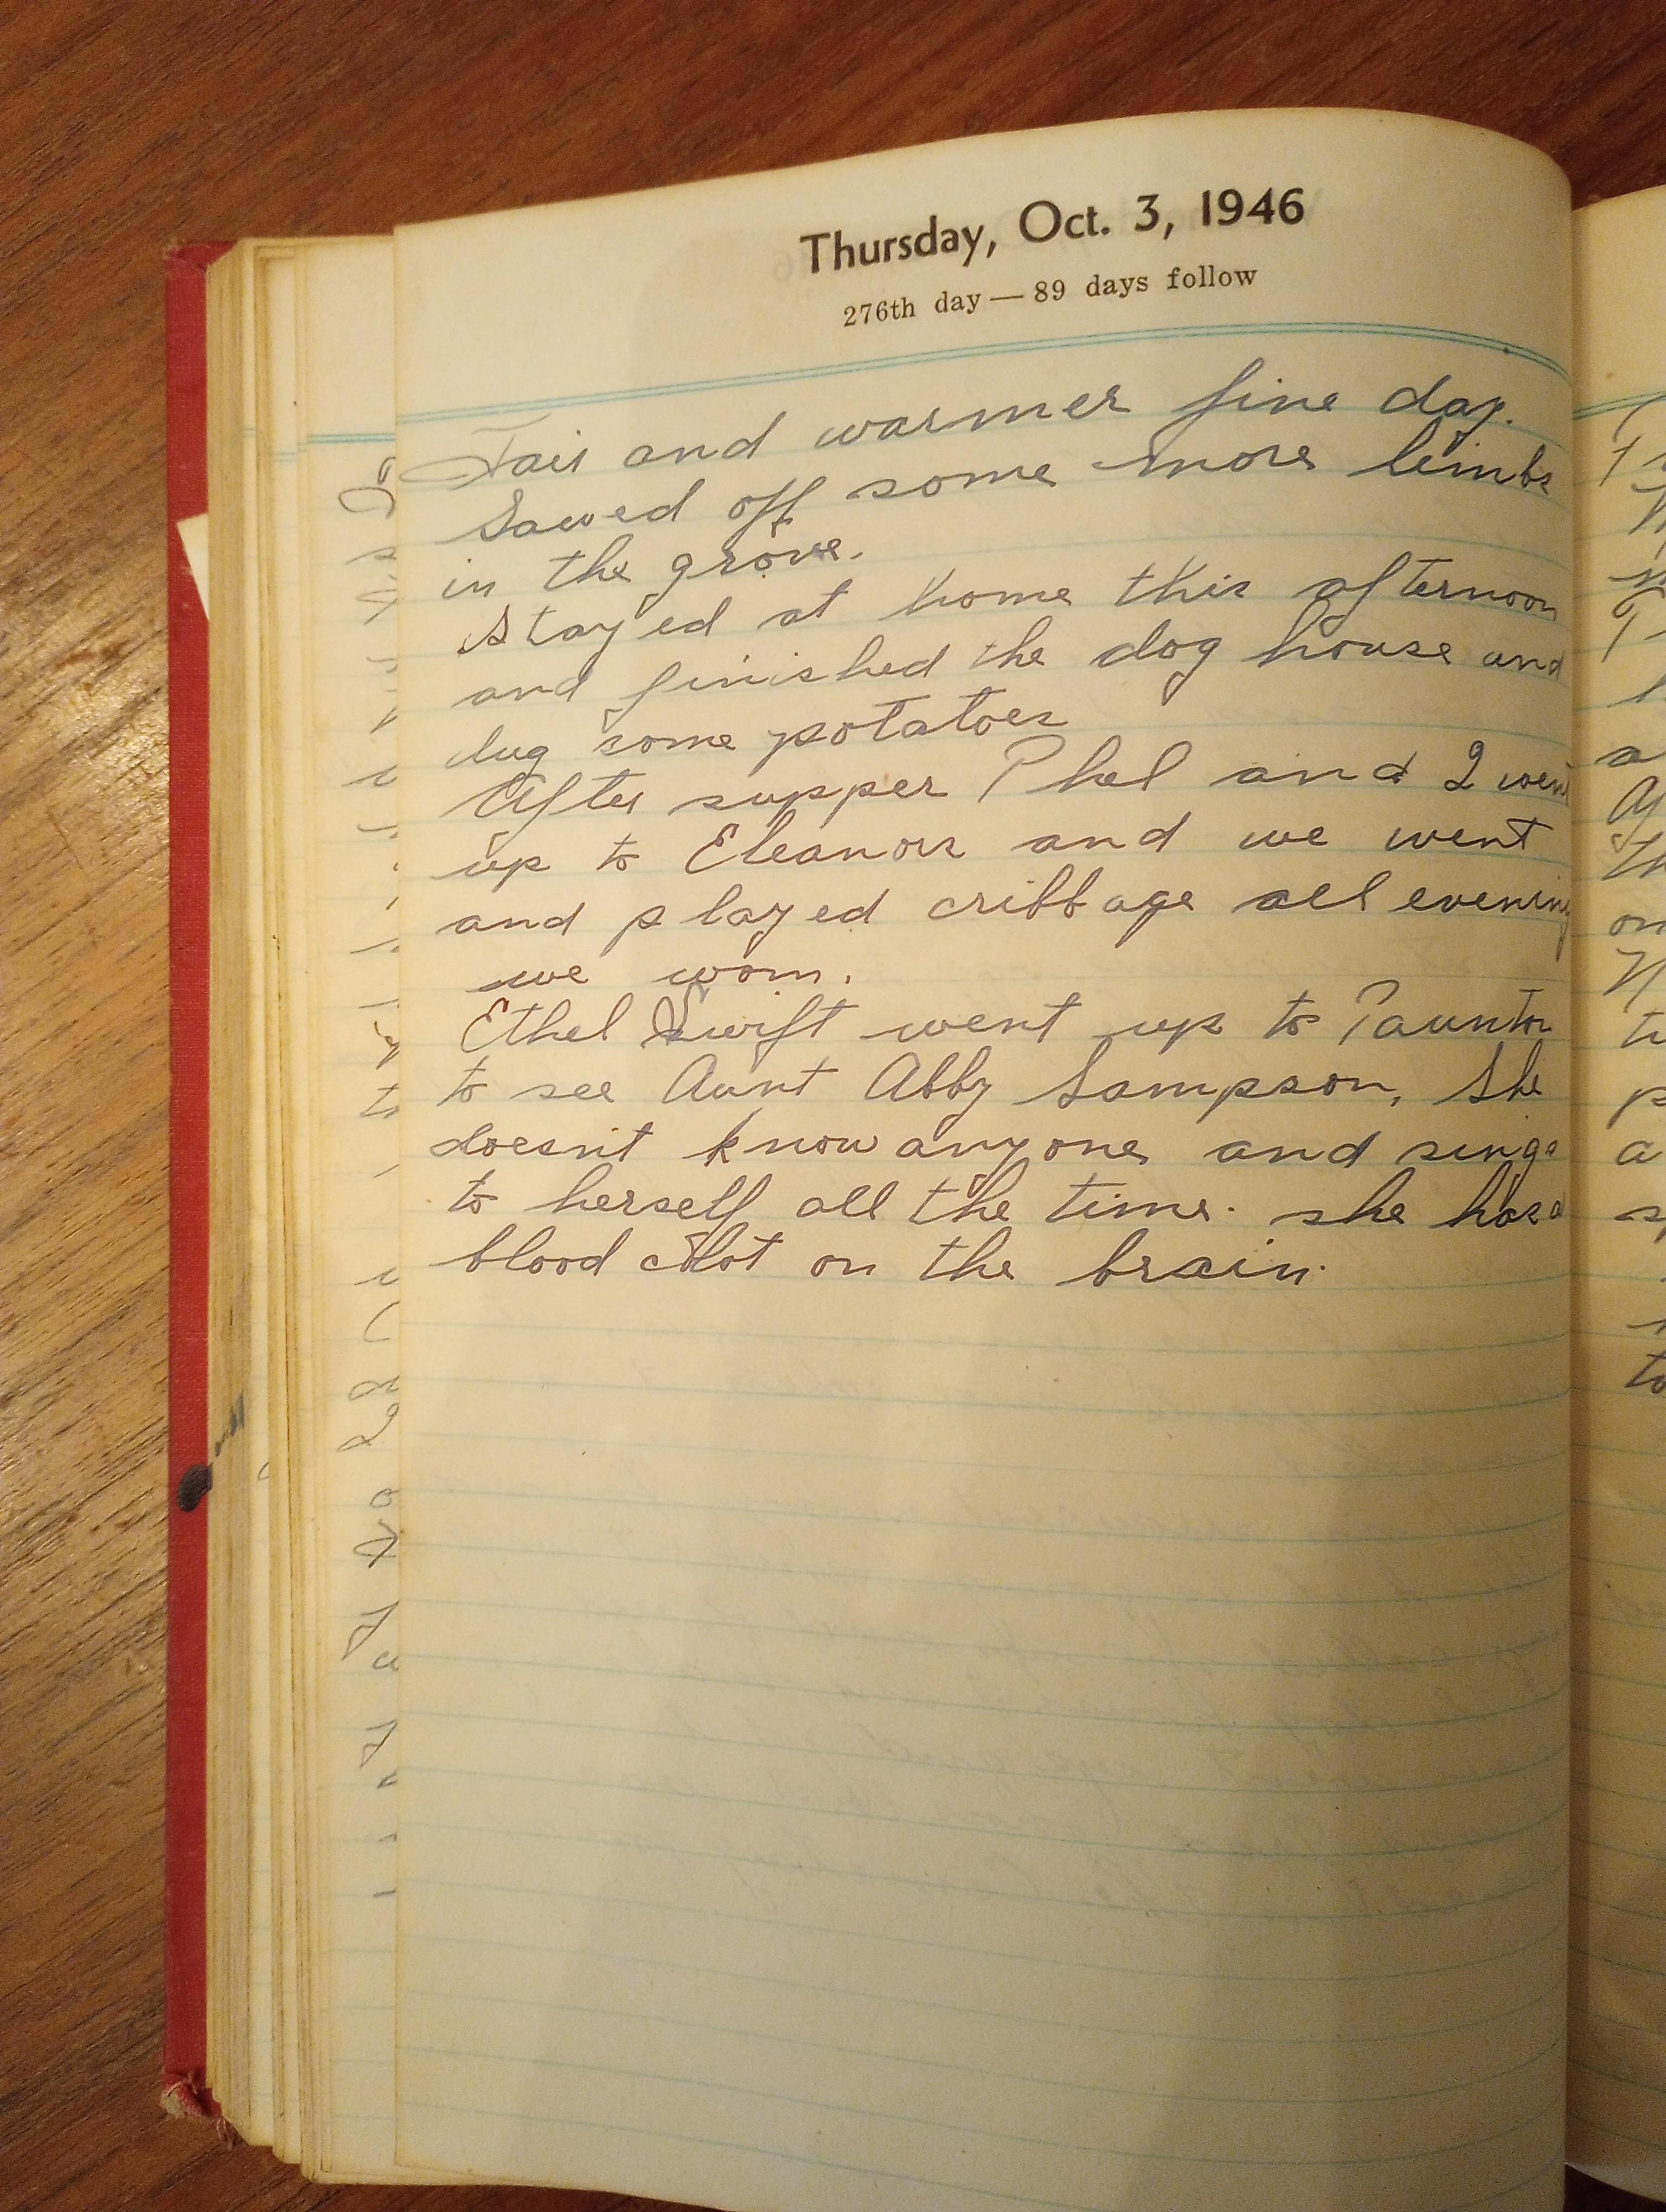 Thursday, Oct. 3, 1946
276th day — 89 days follow
Fair and warmer fine day.
Sawed off some more limbs
in the grove.
Stayed at home this afternoon
and finished the dog house and
dug some potatoes
After supper Phel and I went
up to Eleanors and we went
and played cribbage all evening
we won.
Ethel Swift went up to Taunton
to see Aunt Abby Sampson, She
doesn't know anyone and sings
to herself all the time. she has a
blood clot on the brain.